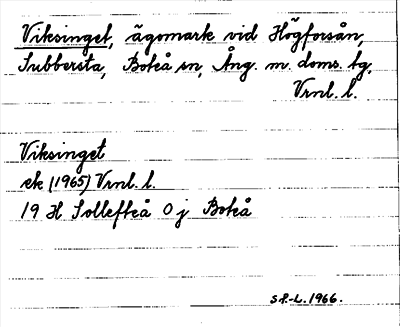 Viksinget, ägomark vid Högforsån,
Subbersta, Boteå sn, Ång. m. doms. tg,
Vrnl. l.
Viksinget
ek (1965) Vrnl. l.
19 H Sollefteå 0 j Boteå
SP.-L. 1966.